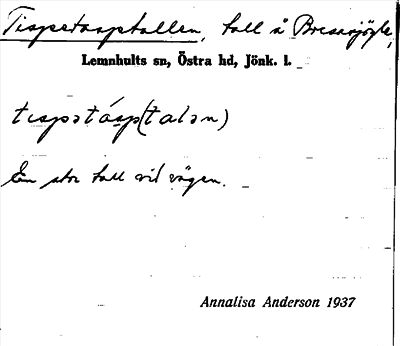 Tispetaaptallen, tall å
Lemnhults sn, Östra hd, Jönk. l.
tıspətásp(talən)
En stor tall vid vägen.
Annalisa Anderson 1937